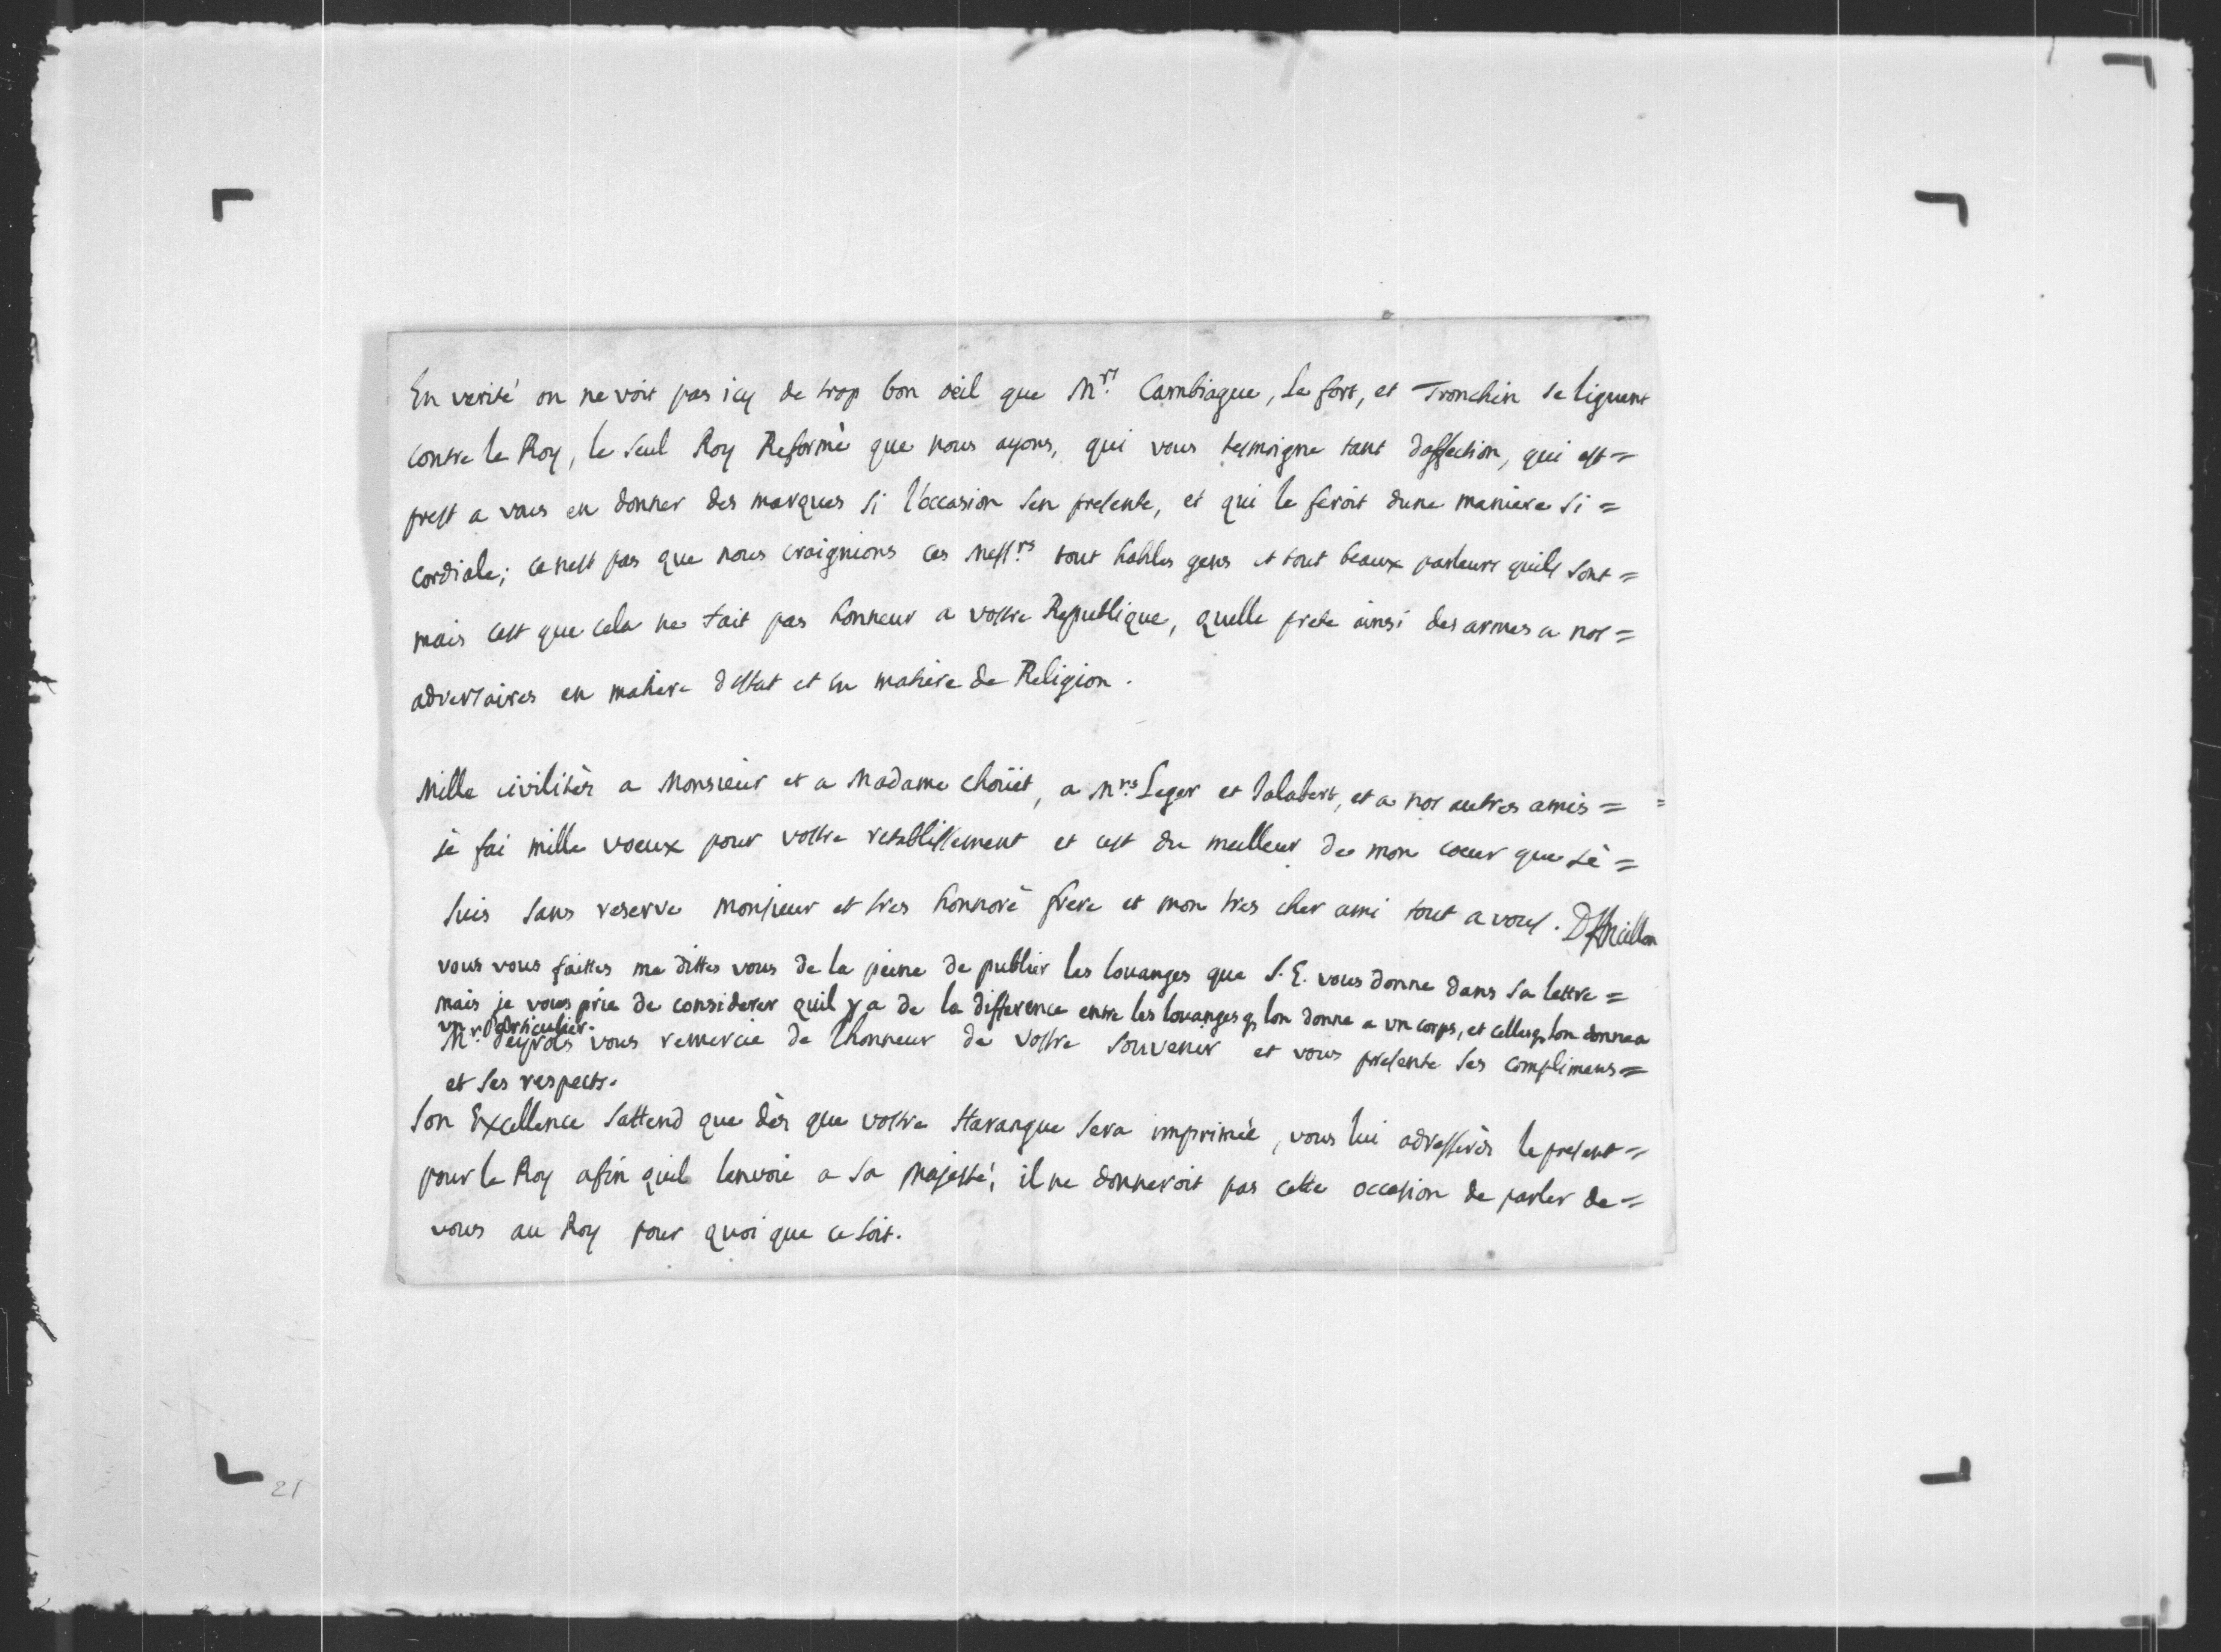 En verité on ne voit pas icy de trop bon œil que Mrs. Cambiague, Le fort, et Tronchin se liguent
contre le Roy, le seul Roy Reformè que nous ayons, qui vous tesmoigne tant daffection, qui est =
prest a vous en donner des marques si l'occasion sen presente, et qui le feroit dune maniere si =
cordiale; ce nest pas que nous craignions ces Messrs. tout habiles gens et tout beaux parleurs quils sont =
mais cest que cela ne fait pas honneur a vostre Republique, quelle prete ainsi des armes a nos =
adversaires en matiere destat et en matiere de Religion.
Mille civilitès a Monsieur et a Madame choüet, a Mrs. Leger et Jalabert, et a nos autres amis =
je fai mille voeux pour vostre retablissement et cest du meilleur de mon coeur que je =
suis sans reserve monsieur et tres honnorè frere et mon tres cher ami tout a vous. DAncillon
vous vous faittes me dittes vous de la peine de publier les louanges que S. E. vous donne dans sa lettre =
mais je vous prie de considerer quil y a de la difference entre les louanges q lon donne a un corps, et celles q lon donne a
un particulier.
Mr. Peyrols vous remercie de lhonneur de vostre souvenir et vous presente ses complimens =
et ses respects.
Son Excellence sattend que dès que vostre Harangue sera imprimée, vous lui adresserès le present =
pour le Roy afin quil lenvoie a sa Majesté, il ne donneroit pas cette occasion de parler de =
vous au Roy pour quoi que ce soit.
21